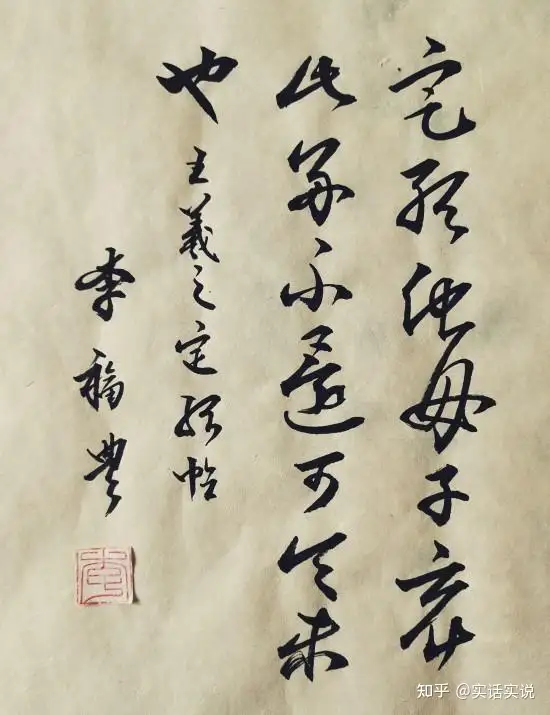 定聽他母子哀
此等不還可令未
也 王羲之定聽帖
李福豊
知乎 @实话实说